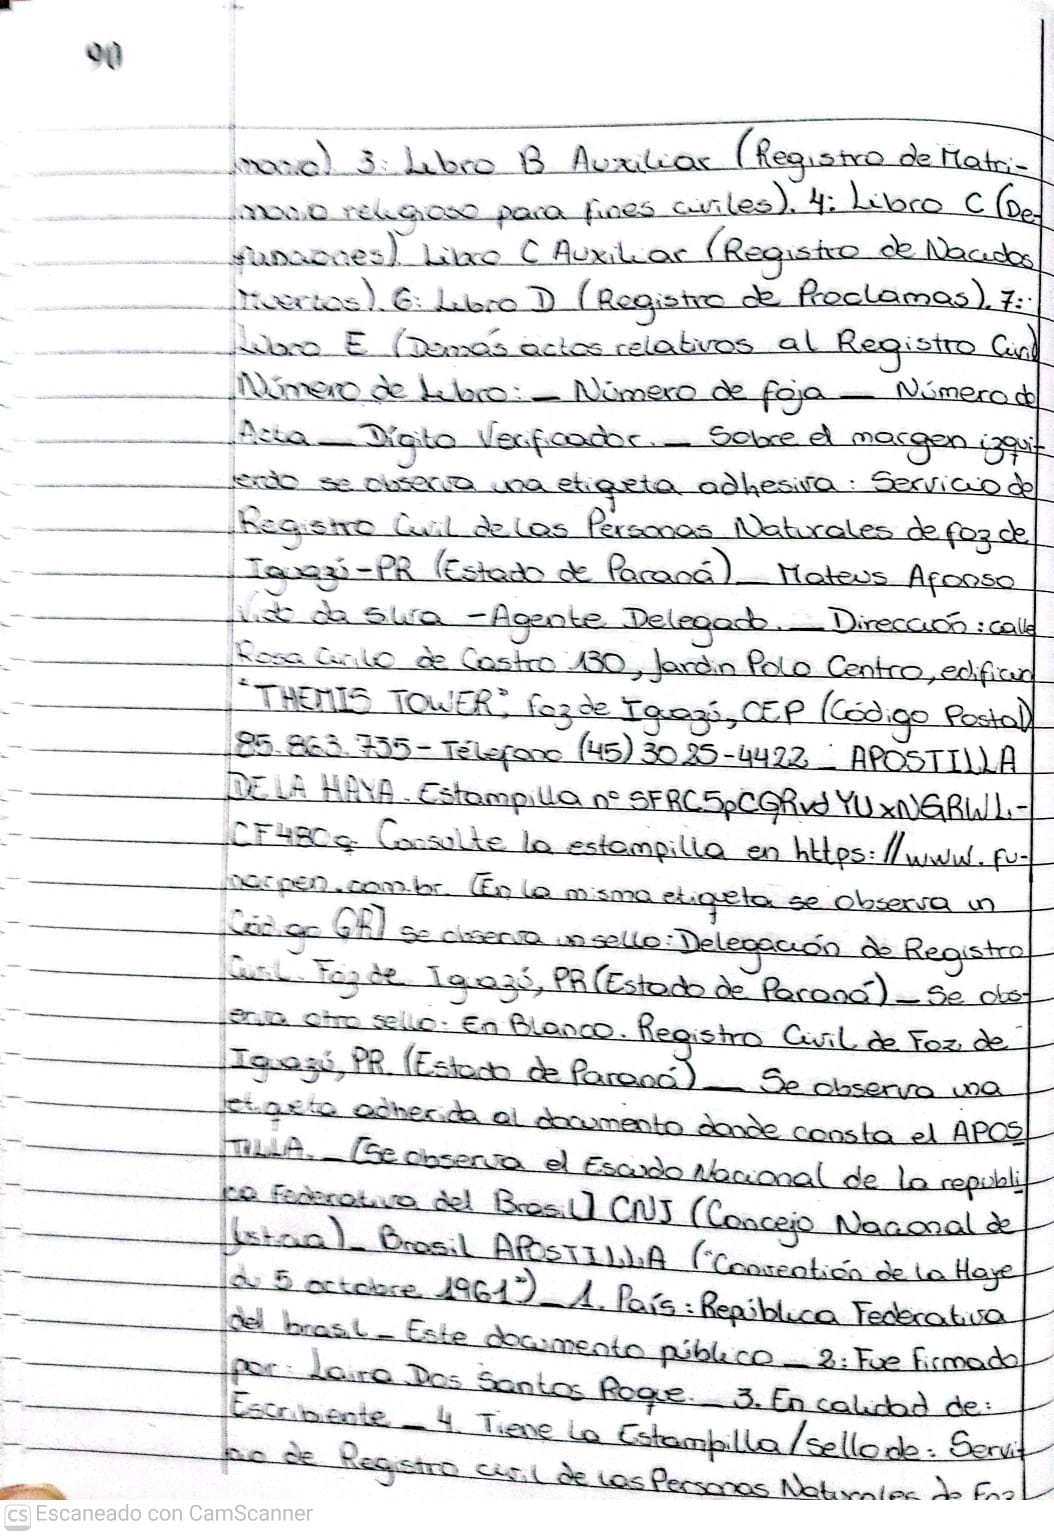 90
monio) 3: Libro B Auxiliar (Registro de Matri-
monio religioso para fines civiles). 4: Libro C (De-
funciones) Libro C Auxiliar (Registro de Nacidos
Muertos). 6: Libro D (Registro de Proclamas). 7:
Libro E (Demás actos relativos al Registro Civil)
Número de Libro: — Número de foja — Número de
Acta — Dígito Verificador. — Sobre el margen izqui-
erdo se observa una etiqueta adhesiva: Servicio de
Registro Civil de las Personas Naturales de foz de
Iguazú-PR (Estado de Paraná) — Mateus Afonso
da silva - Agente Delegado. — Dirección: calle
Rosa Cirilo de Castro 130, Jardin Polo Centro, edificio
"THEMIS TOWER", foz de Iguazú, CEP (Código Postal)
85.863.735 - Télefono (45) 3025-4422 - APOSTILLA
DE LA HAYA. Estampilla nº SFRC5pCQRvdYUxNGRWL-
CF480q Consulte la estampilla en https://www.fu-
narpen.com.br. [En la misma etiqueta se observa un
Código QR] se observa un sello: Delegación de Registro
Civil. Foz de Iguazú, PR (Estado de Paraná) — Se obs-
erva otro sello: En Blanco. Registro Civil de Foz de
Iguazú, PR. (Estado de Paraná) — Se observa una
etiqueta adherida al documento donde consta el APOS
TILLA. — [Se observa el Escudo Nacional de la republi
ca Federativa del Brasil] CNJ (Concejo Nacional de
Justicia) — Brasil APOSTILLA ("Convention de la Haye
du 5 octobre 1961") — 1. País: República Federativa
del brasil — Este documento público — 2: Fue firmado
por: Laira Dos Santos Roque. — 3. En calidad de:
Escribiente — 4. Tiene la Estampilla/sello de: Servi-
cio de Registro civil de las Personas Naturales de Foz
CS Escaneado con CamScanner